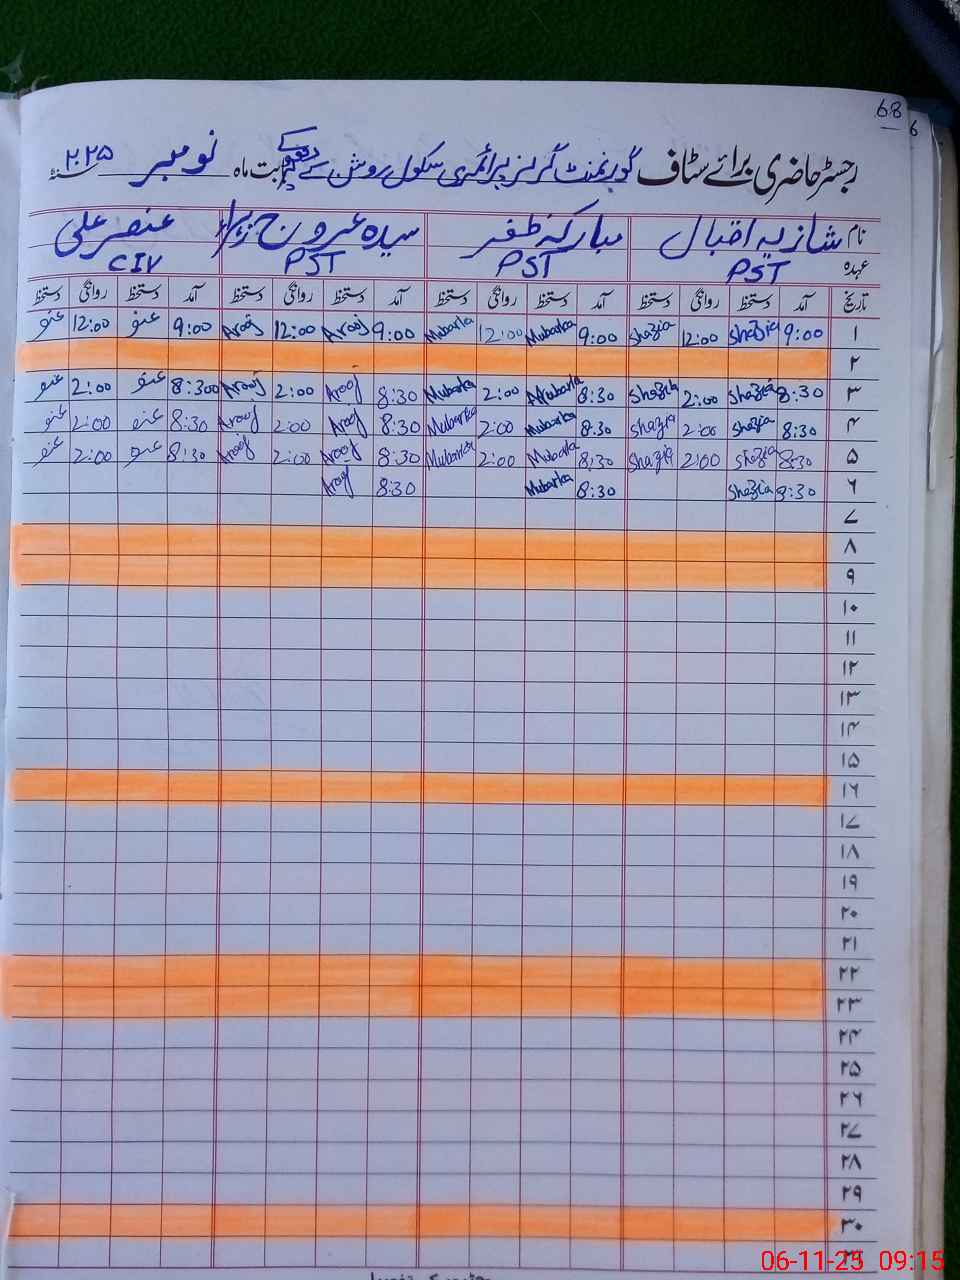 68
6
رجسٹر حاضری برائے سٹاف گورنمنٹ گرلز پرائمری سکول روشن کے بابت ماہ نومبر ۲۰۲۵ سنۂ
نام شازیہ اقبال مبارکہ ظفر سیدہ عروج زہراء عنصر علی
عہدہ PST PST PST CIV
تاریخ آمد دستخط روانگی دستخط آمد دستخط روانگی دستخط آمد دستخط روانگی دستخط آمد دستخط روانگی دستخط
۱ 9:00 Shazia 12:00 Shazia 9:00 Mubarka 12:00 Mubarka 9:00 Arooj 12:00 Arooj 9:00 عنو 12:00 عنو
۲
۳ 8:30 Shazia 2:00 Shazia 8:30 Mubarka 2:00 Mubarka 8:30 Arooj 2:00 Arooj 8:300 عنو 2:00 عنو
۴ 8:30 Shazia 2:00 Shazia 8:30 Mubarka 2:00 Mubarka 8:30 Arooj 2:00 Arooj 8:30 عنو 2:00 عنو
۵ 8:30 Shazia 2:00 Shazia 8:30 Mubarka 2:00 Mubarka 8:30 Arooj 2:00 Arooj 8:30 عنو 2:00 عنو
۶ 8:30 Shazia 8:30 Mubarka 8:30 Arooj
۷
۸
۹
۱۰
۱۱
۱۲
۱۳
۱۴
۱۵
۱۶
۱۷
۱۸
۱۹
۲۰
۲۱
۲۲
۲۳
۲۴
۲۵
۲۶
۲۷
۲۸
۲۹
۳۰
۳۱
06-11-25 09:15